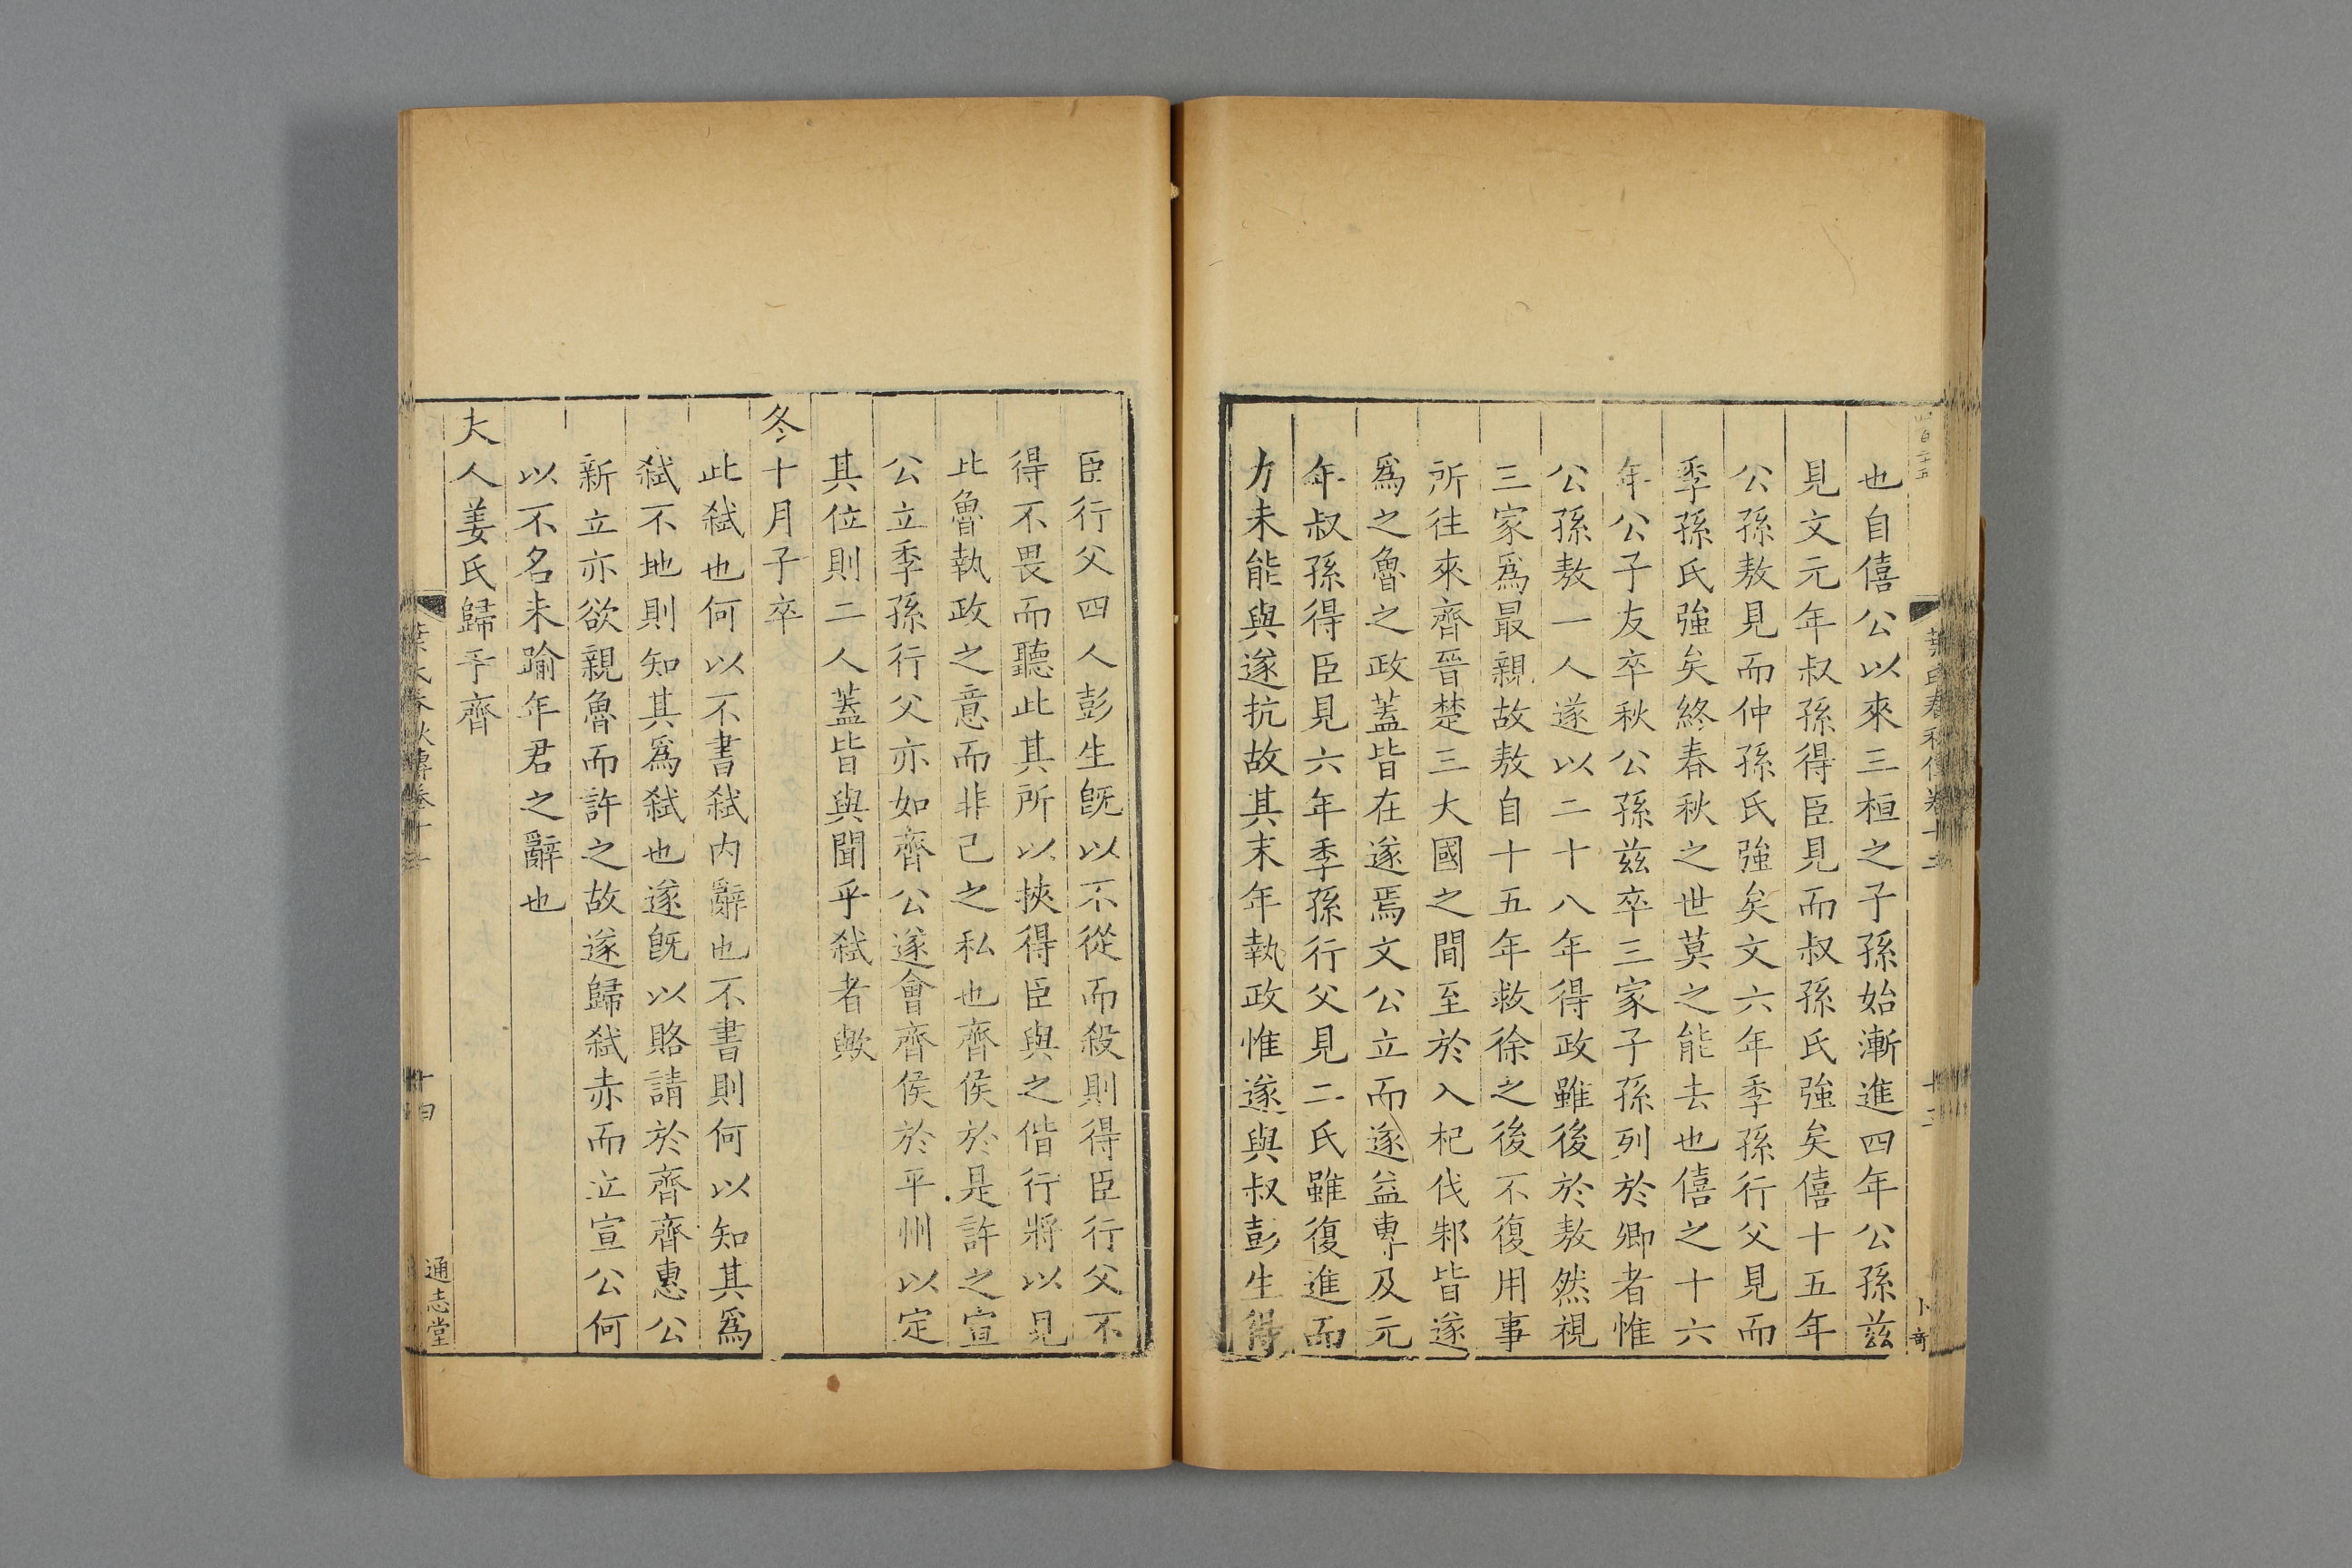 也自僖公以來三桓之子孫始漸進四年公孫兹
見文元年叔孫得臣見而叔孫氏強矣僖十五年
公孫敖見而仲孫氏強矣文六年季孫行父見而
季孫氏強矣終春秋之世莫之能去也僖之十六
年公子友卒秋公孫兹卒三家子孫列於卿者惟
公孫敖一人遂以二十八年得政雖後於敖然視
三家爲最親故敖自十五年救徐之後不復用事
所往來齊晉楚三大國之間至於入杞伐邾皆遂
爲之魯之政蓋皆在遂焉文公立而遂益專及元
年叔孫得臣見六年季孫行父見二氏雖復進而
力未能與遂抗故其末年執政惟遂與叔彭生得
臣行父四人彭生旣以不從而殺則得臣行父不
得不畏而聽此其所以挾得臣與之偕行將以見
此魯執政之意而非己之私也齊侯於是許之宣
公立季孫行父亦如齊公遂會齊侯於平州以定
其位則二人蓋皆與聞乎弒者歟
冬十月子卒
此弒也何以不書弒内辭也不書則何以知其爲
弒不地則知其爲弒也遂旣以賂請於齊齊惠公
新立亦欲親魯而許之故遂歸弒赤而立宣公何
以不名未踰年君之辭也
夫人姜氏歸于齊
葉氏春秋傳卷十三
十四
通志堂